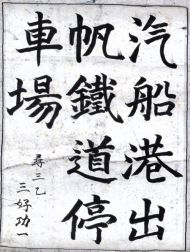 汽船港出
帆鐵道停
車場
尋三乙
三好功一